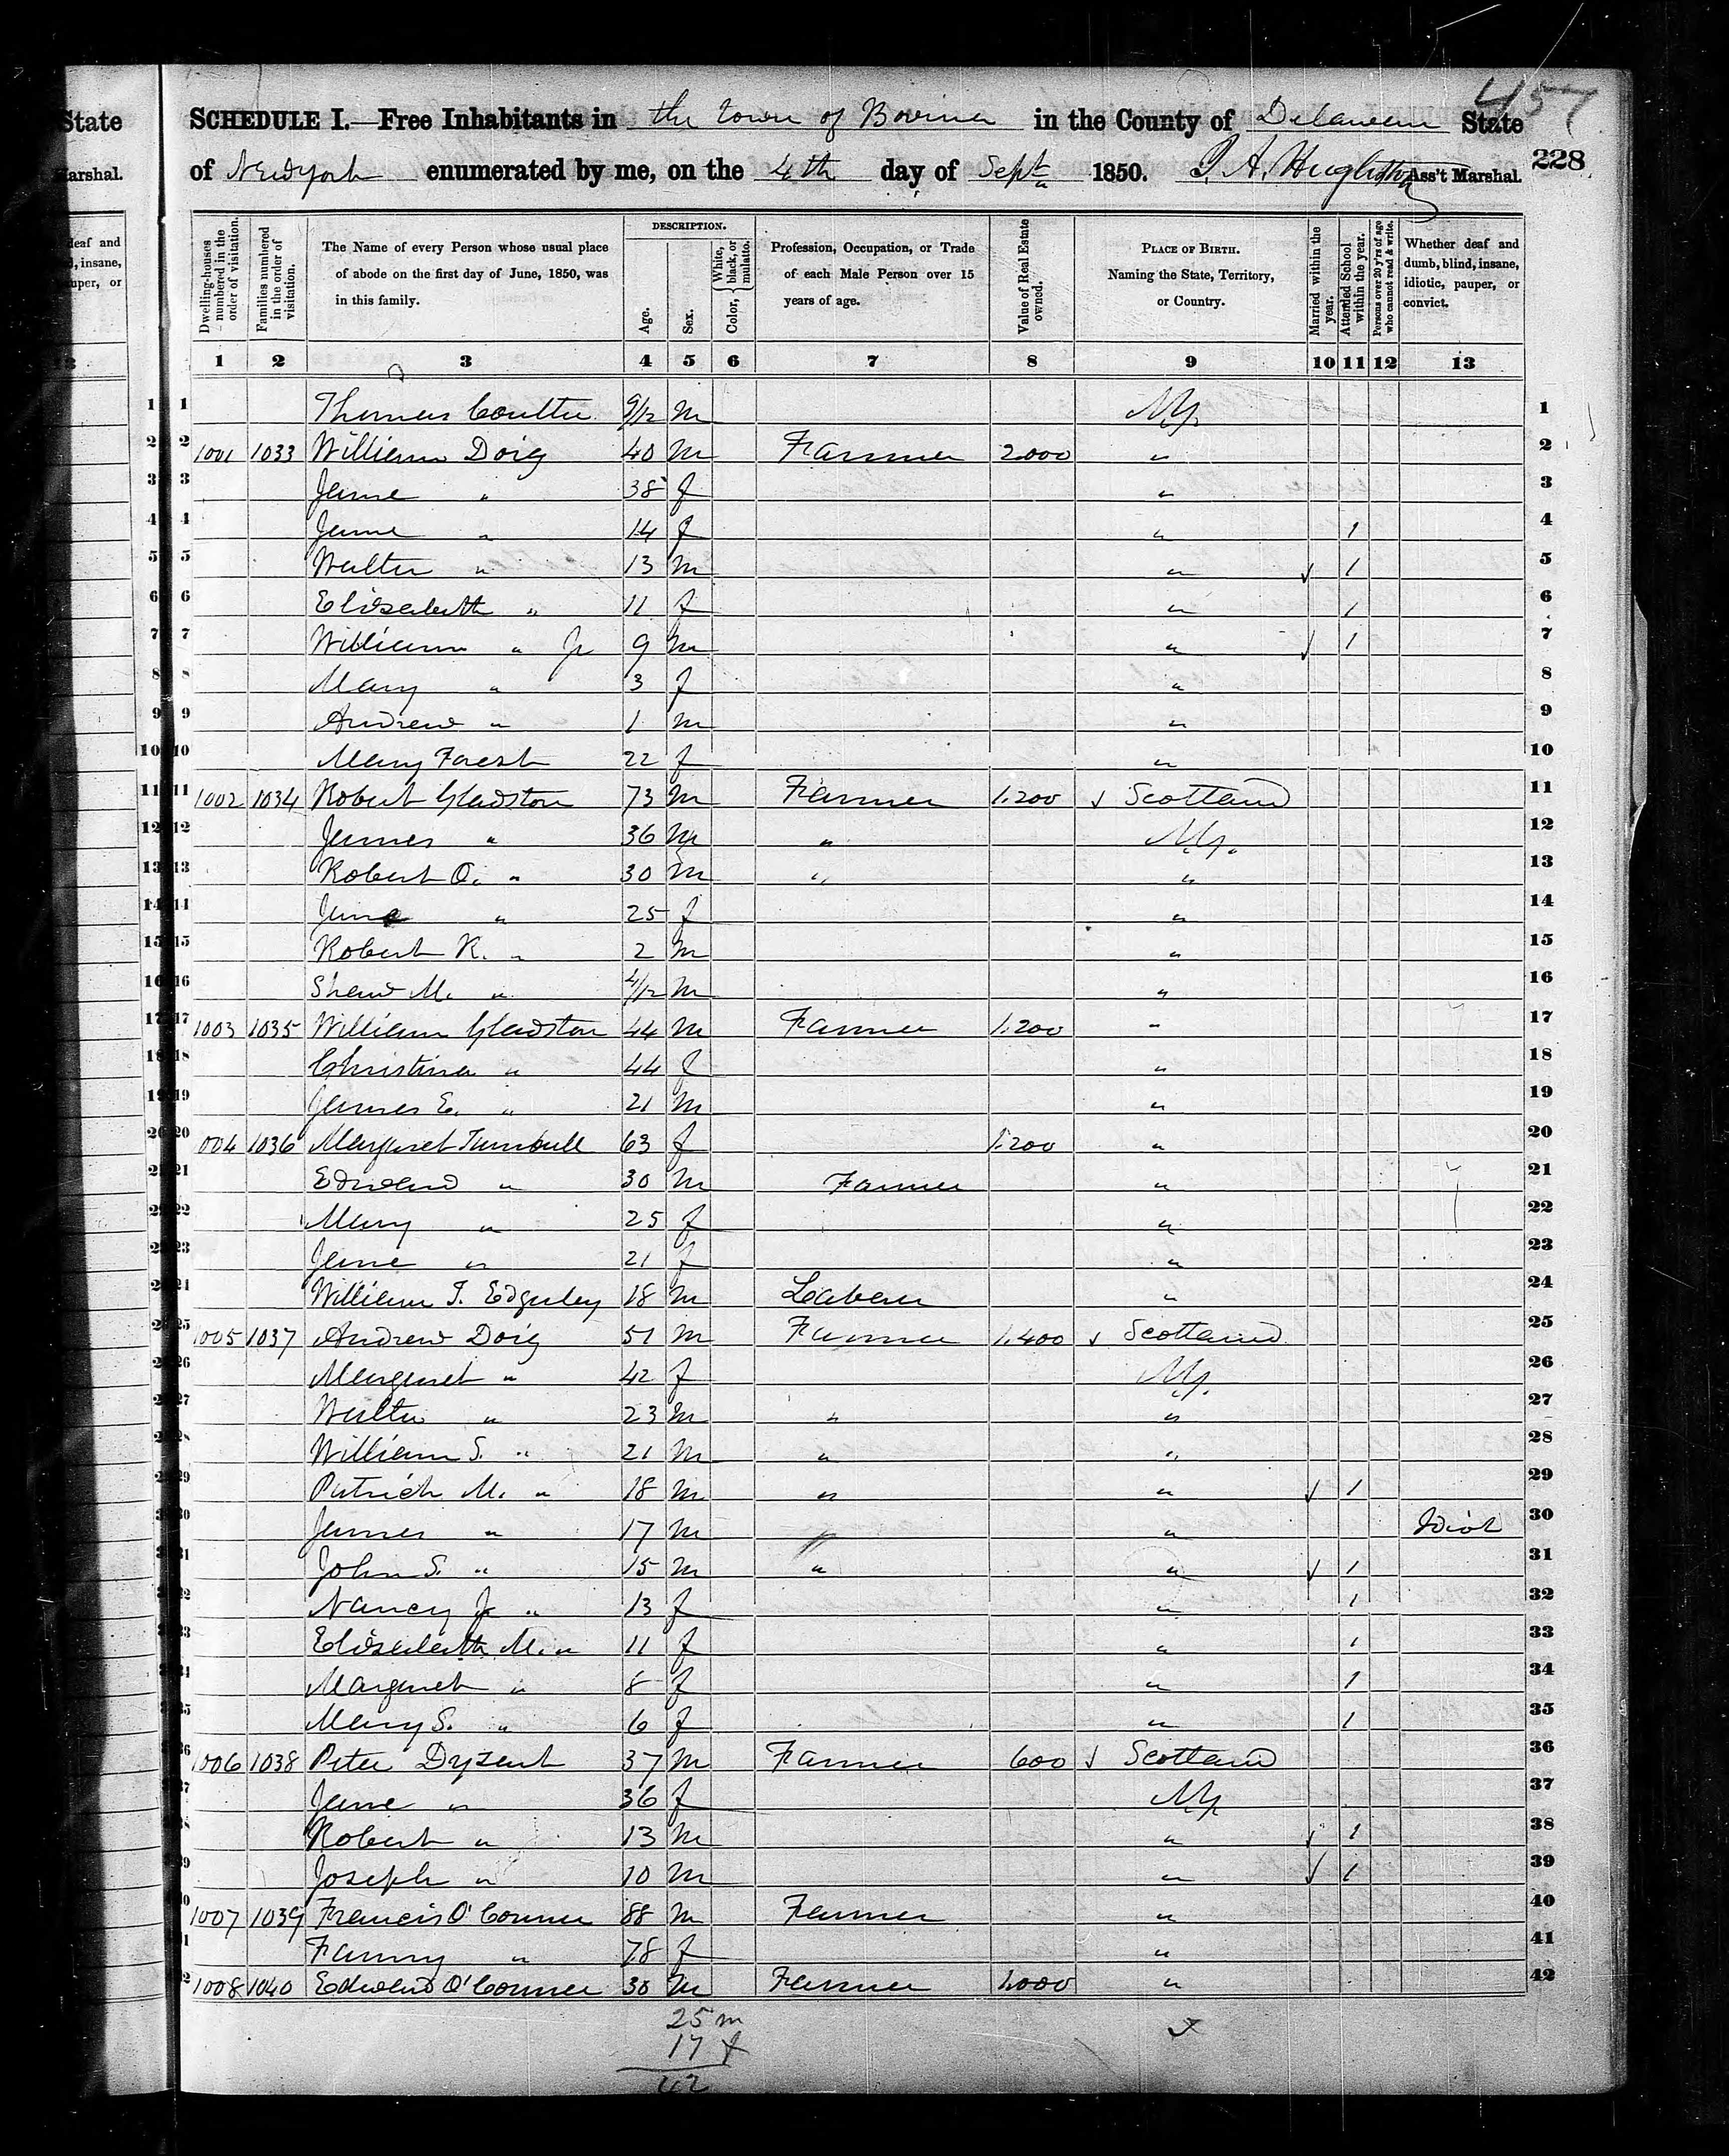 457
State
SCHEDULE I.—Free Inhabitants in the town of Bovina in the County of Delaware State
228
Marshal.
of New York enumerated by me, on the 4th day of Sept 1850. Ass't Marshal.
deaf and
d, insane,
uper, or
Dwelling-houses numbered in the order of visitation.
Families numbered in the order of visitation.
The Name of every Person whose usual place of abode on the first day of June, 1850, was in this family.
DESCRIPTION.
Age.
Sex.
Color, { White, black, or mulatto.
Profession, Occupation, or Trade of each Male Person over 15 years of age.
Value of Real Estate owned.
PLACE OF BIRTH. Naming the State, Territory, or Country.
Married within the year.
Attended School within the year.
Persons over 20 y'rs of age who cannot read & write.
Whether deaf and dumb, blind, insane, idiotic, pauper, or convict.
1 2 3 4 5 6 7 8 9 10 11 12 13
1 Thomas Coulter 9/12 M N.Y. 1
2 1001 1033 William Doig 40 M Farmer 2.000 " 2
3 Jane " 38 f " 3
4 Jane " 14 f " 1 4
5 Walter " 13 M " ✓ 1 5
6 Elizabeth " 11 f " 1 6
7 William " Jr 9 M " ✓ 1 7
8 Mary " 3 f " 8
9 Andrew " 1 M " 9
10 Mary Forest 22 f " 10
11 1002 1034 Robert Gladston 73 M Farmer 1.200 ✓ Scotland 11
12 James " 36 M " N.Y. 12
13 Robert O. " 30 M " " 13
14 Jane " 25 f " 14
15 Robert R. " 2 M " 15
16 Shaw M. " 4/12 M " 16
17 1003 1035 William Gladston 44 M Farmer 1.200 " 17
18 Christina " 44 f " 18
19 James E. " 21 M " 19
20 1004 1036 Margaret Turnbull 63 f 1.200 " 20
21 Edward " 30 M Farmer " 21
22 Mary " 25 f " 22
23 Jane " 21 f " 23
24 William T. Edgerley 18 M Laborer " 24
25 1005 1037 Andrew Doig 51 M Farmer 1.400 ✓ Scotland 25
26 Margaret " 42 f N.Y. 26
27 Walter " 23 M " " 27
28 William S. " 21 M " " 28
29 Patrick M. " 18 M " " ✓ 1 29
30 James " 17 M " Idiot 30
31 John S. " 15 M " " ✓ 1 31
32 Nancy J. " 13 f " 1 32
33 Elizabeth M. " 11 f " 1 33
34 Margaret " 8 f " 1 34
35 Mary S. " 6 f " 1 35
36 1006 1038 Peter Dysart 37 M Farmer 600 ✓ Scotland 36
37 Jane " 36 f N.Y. 37
38 Robert " 13 M " ✓ 1 38
39 Joseph " 10 M " ✓ 1 39
40 1007 1039 Francis O'Conner 88 M Farmer " 40
41 Fanny " 78 f " 41
42 1008 1040 Edward O'Conner 30 M Farmer 1.000 " 42
25 m
17 f
42